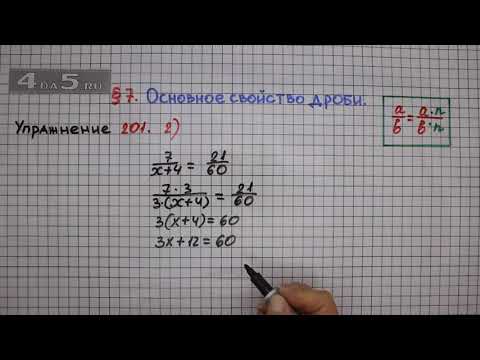 4 DA 5.RU
§ 7. Основное свойство дроби.
a/b = a·n/b·n
Упражнение 201. 2)
7/x+4 = 21/60
7·3/3·(x+4) = 21/60
3(x+4)=60
3x+12=60